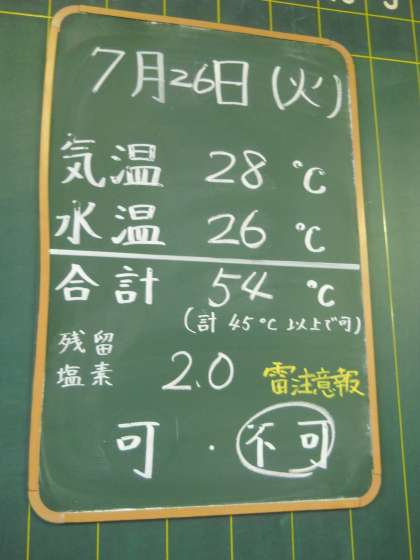 7月26日(火)
気温 28 ℃
水温 26 ℃
合計 54 ℃
(計 45℃ 以上で可)
残留
塩素 2.0 雷注意報
可・不可